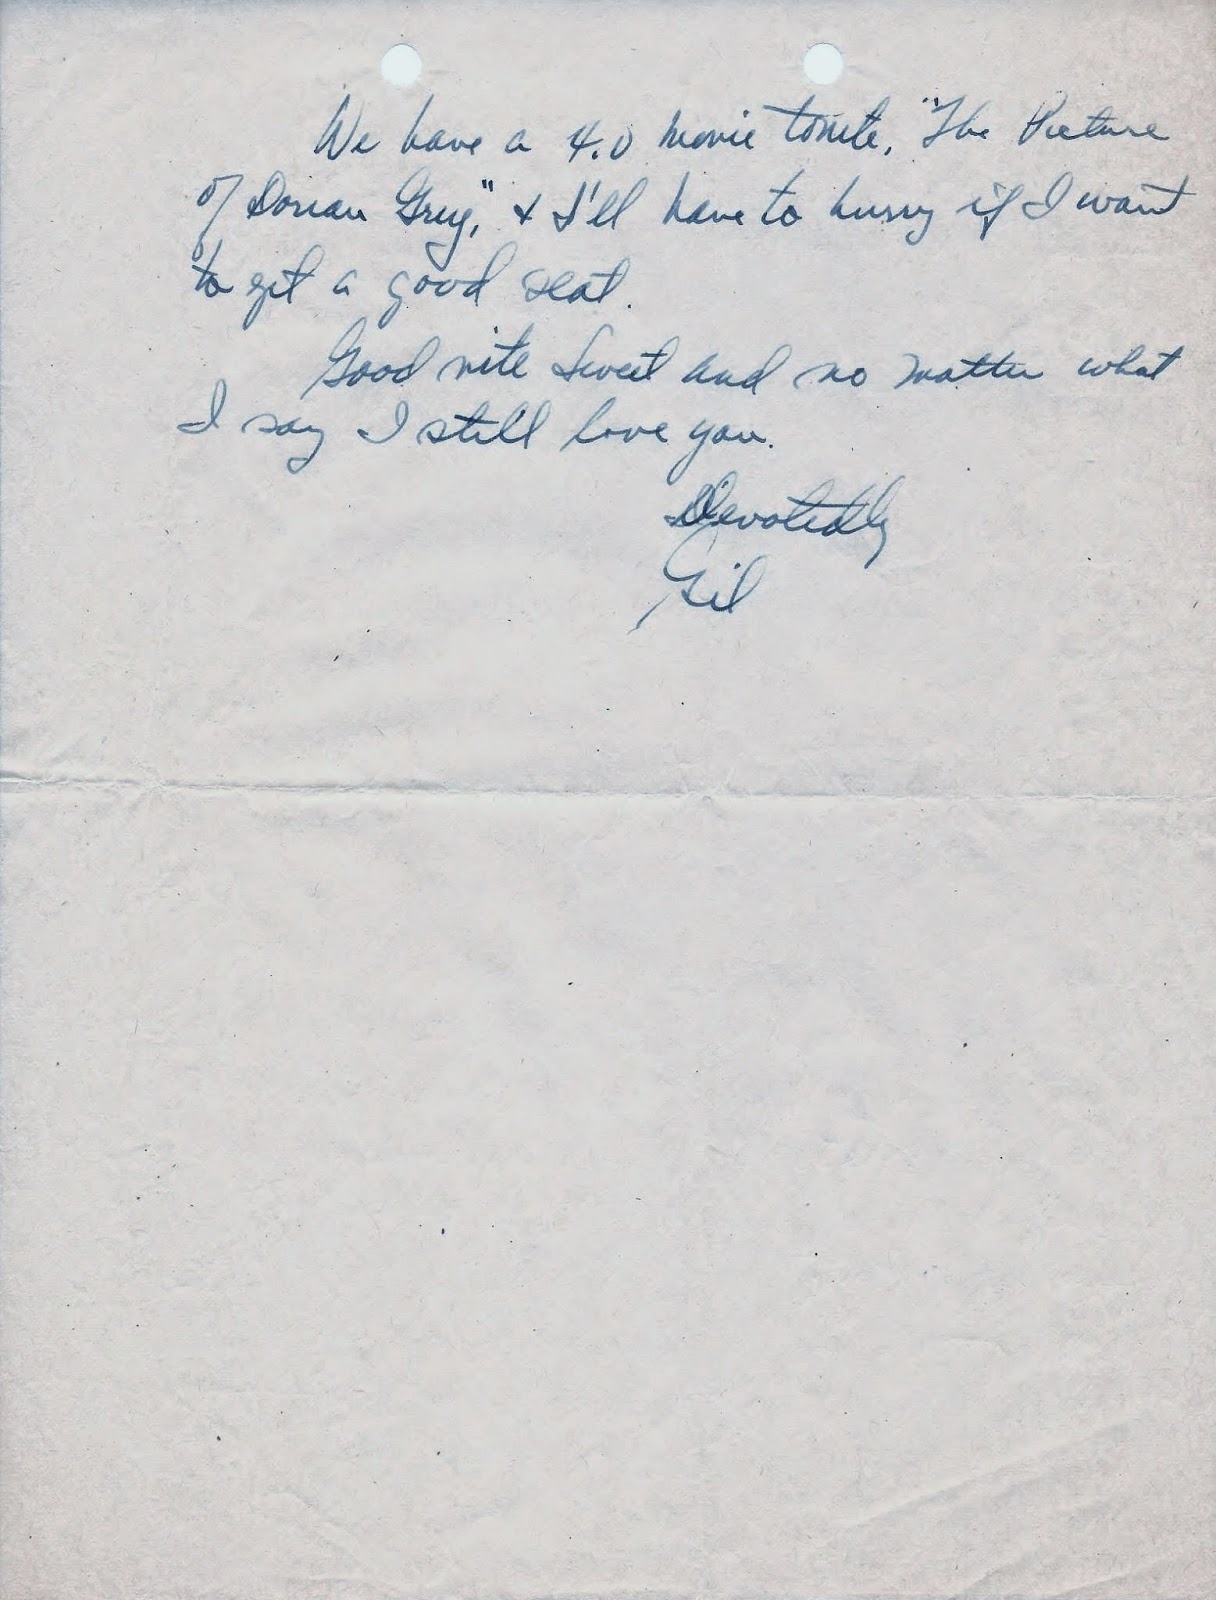 We have a 4.0 movie tonite, "The Picture
of Dorian Grey," & I'll have to hurry if I want
to get a good seat.
Good nite Sweet and no matter what
I say I still love you.
Devotedly
Gil